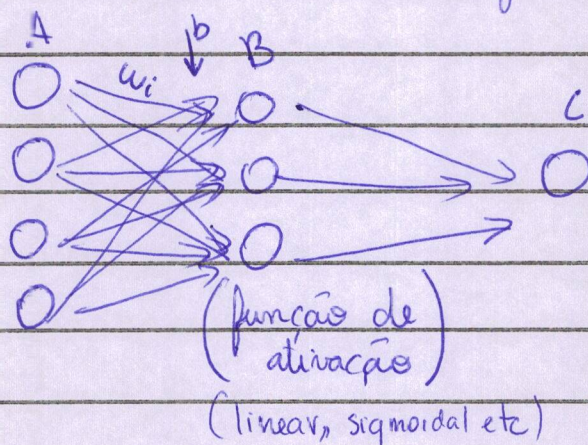 A
b
B
wi
C
(função de
ativação)
(linear, sigmoidal etc)